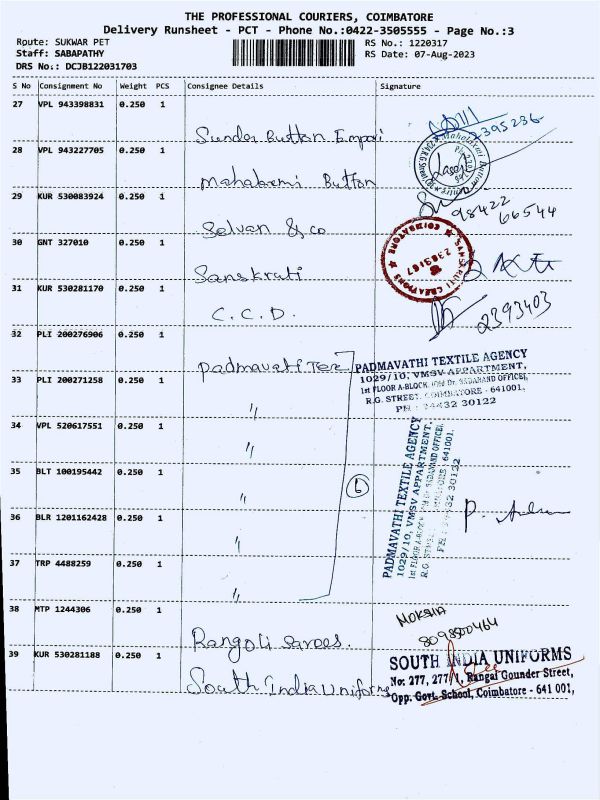 THE PROFESSIONAL COURIERS, COIMBATORE
Delivery Runsheet - PCT - Phone No.:0422-3505555 - Page No.:3
Route: SUKWAR PET
RS No.: 1220317
Staff: SABAPATHY
RS Date: 07-Aug-2023
DRS No.: DCJB122031703
S No Consignment No Weight PCS Consignee Details Signature
27 VPL 943398831 0.250 1
Sunder Button Empori
2395236
28 VPL 943227705 0.250 1
Mahalaxmi Button
29 KUR 530083924 0.250 1
98422
66544
Selvan & co
30 GNT 327010 0.250 1
Sanskruti
SANSKRUTI CREATIONS ★ COIMBATORE ★
2383167
31 KUR 530281170 0.250 1
C.C.D.
2393403
32 PLI 200276906 0.250 1
Padmavathi Tex
PADMAVATHI TEXTILE AGENCY
1029/10, VMSV APPARTMENT,
1st FLOOR A-BLOCK, (Old Dr. SADANAND OFFICE),
R.G. STREET, COIMBATORE - 641001,
PH : 94432 30122
33 PLI 200271258 0.250 1
"
34 VPL 520617551 0.250 1
"
35 BLT 100195442 0.250 1
"
6
PADMAVATHI TEXTILE AGENCY
1029/10, VMSV APPARTMENT,
1st FLOOR A-BLOCK (Old Dr SADANAND OFFICE),
R.G. STREET, COIMBATORE - 641001.
PH : 94432 30122
36 BLR 1201162428 0.250 1
"
37 TRP 4488259 0.250 1
"
38 MTP 1244306 0.250 1
Rangoli Sarees
MOKSHA
8098800464
39 KUR 530281188 0.250 1
South India Uniforms
SOUTH INDIA UNIFORMS
No: 277, 277/1, Rangai Gounder Street,
Opp. Govt. School, Coimbatore - 641 001,